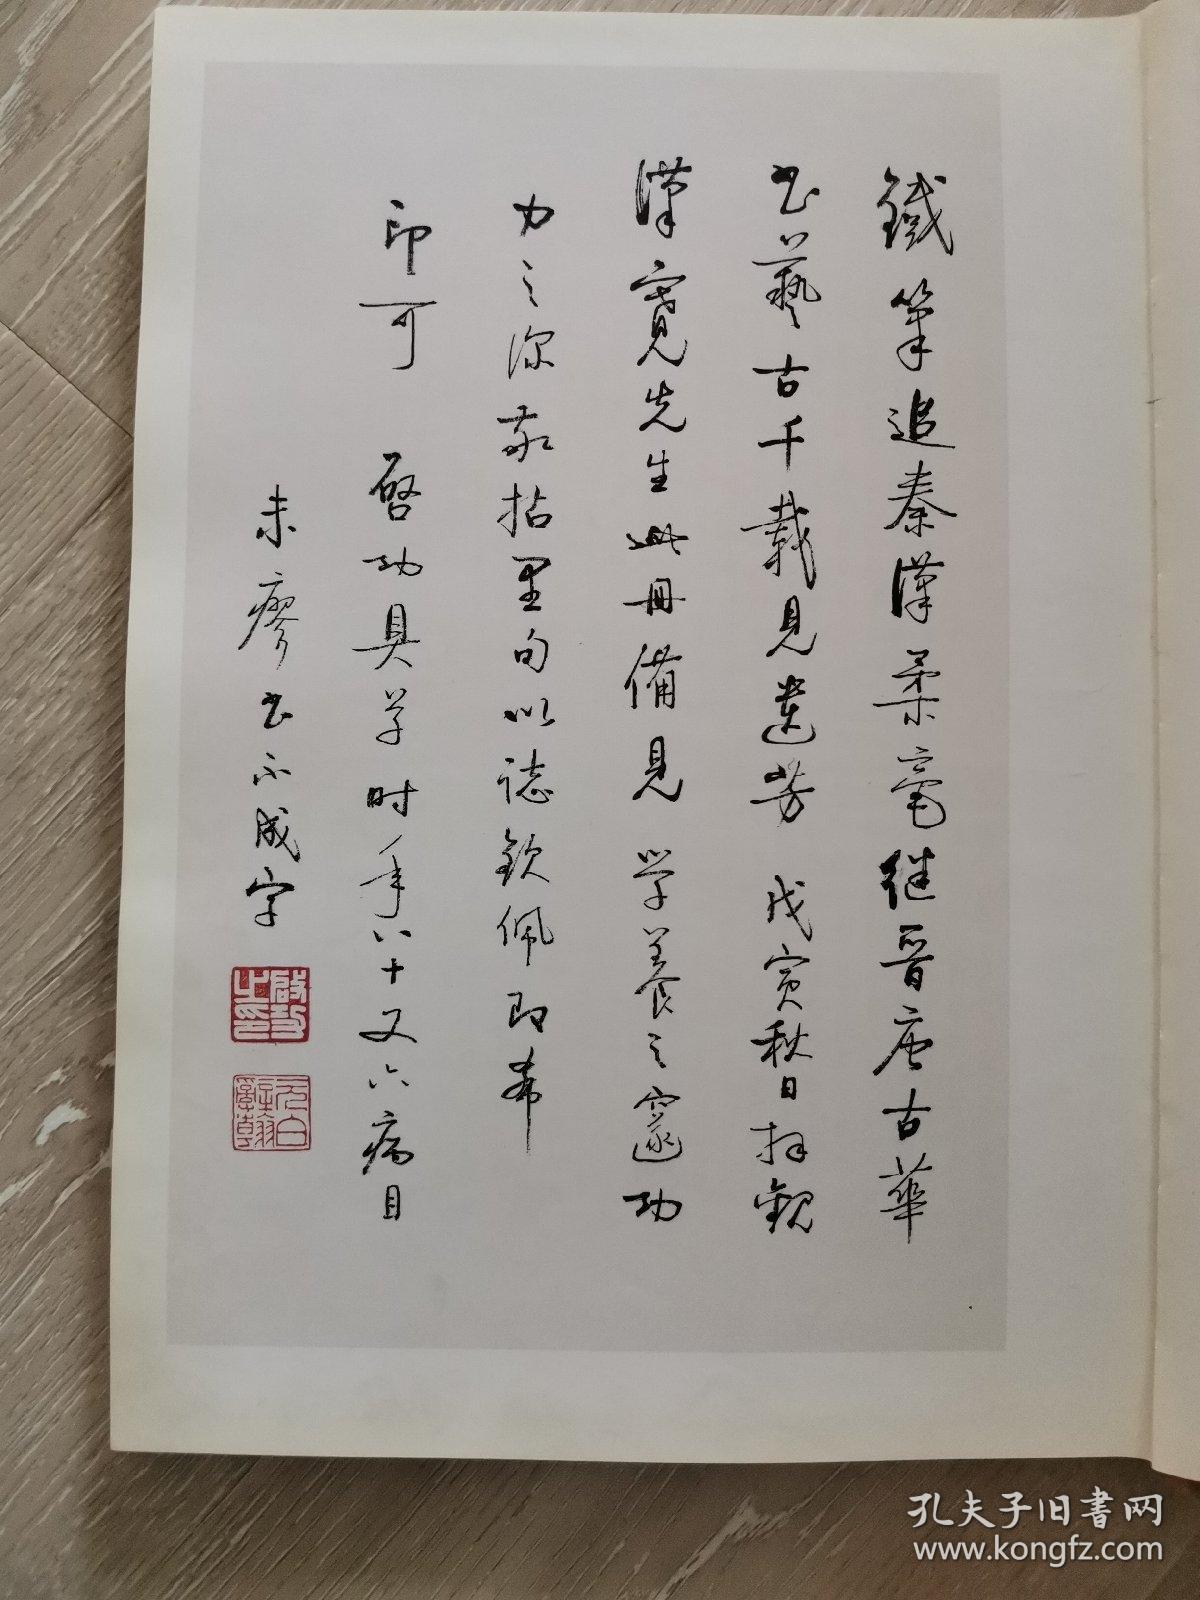 鐵筆追秦漢柔毫継晉唐古華
书藝古千載見遺芳 戊寅秋日拜觀
漢寬先生此冊備見學養之邃功
力之深敬拈里句以誌欽佩即希
印可 啓功具草时年八十又六病目
未瘳书不成字
啟功之印
元白
孔夫子旧書网
www.kongfz.com